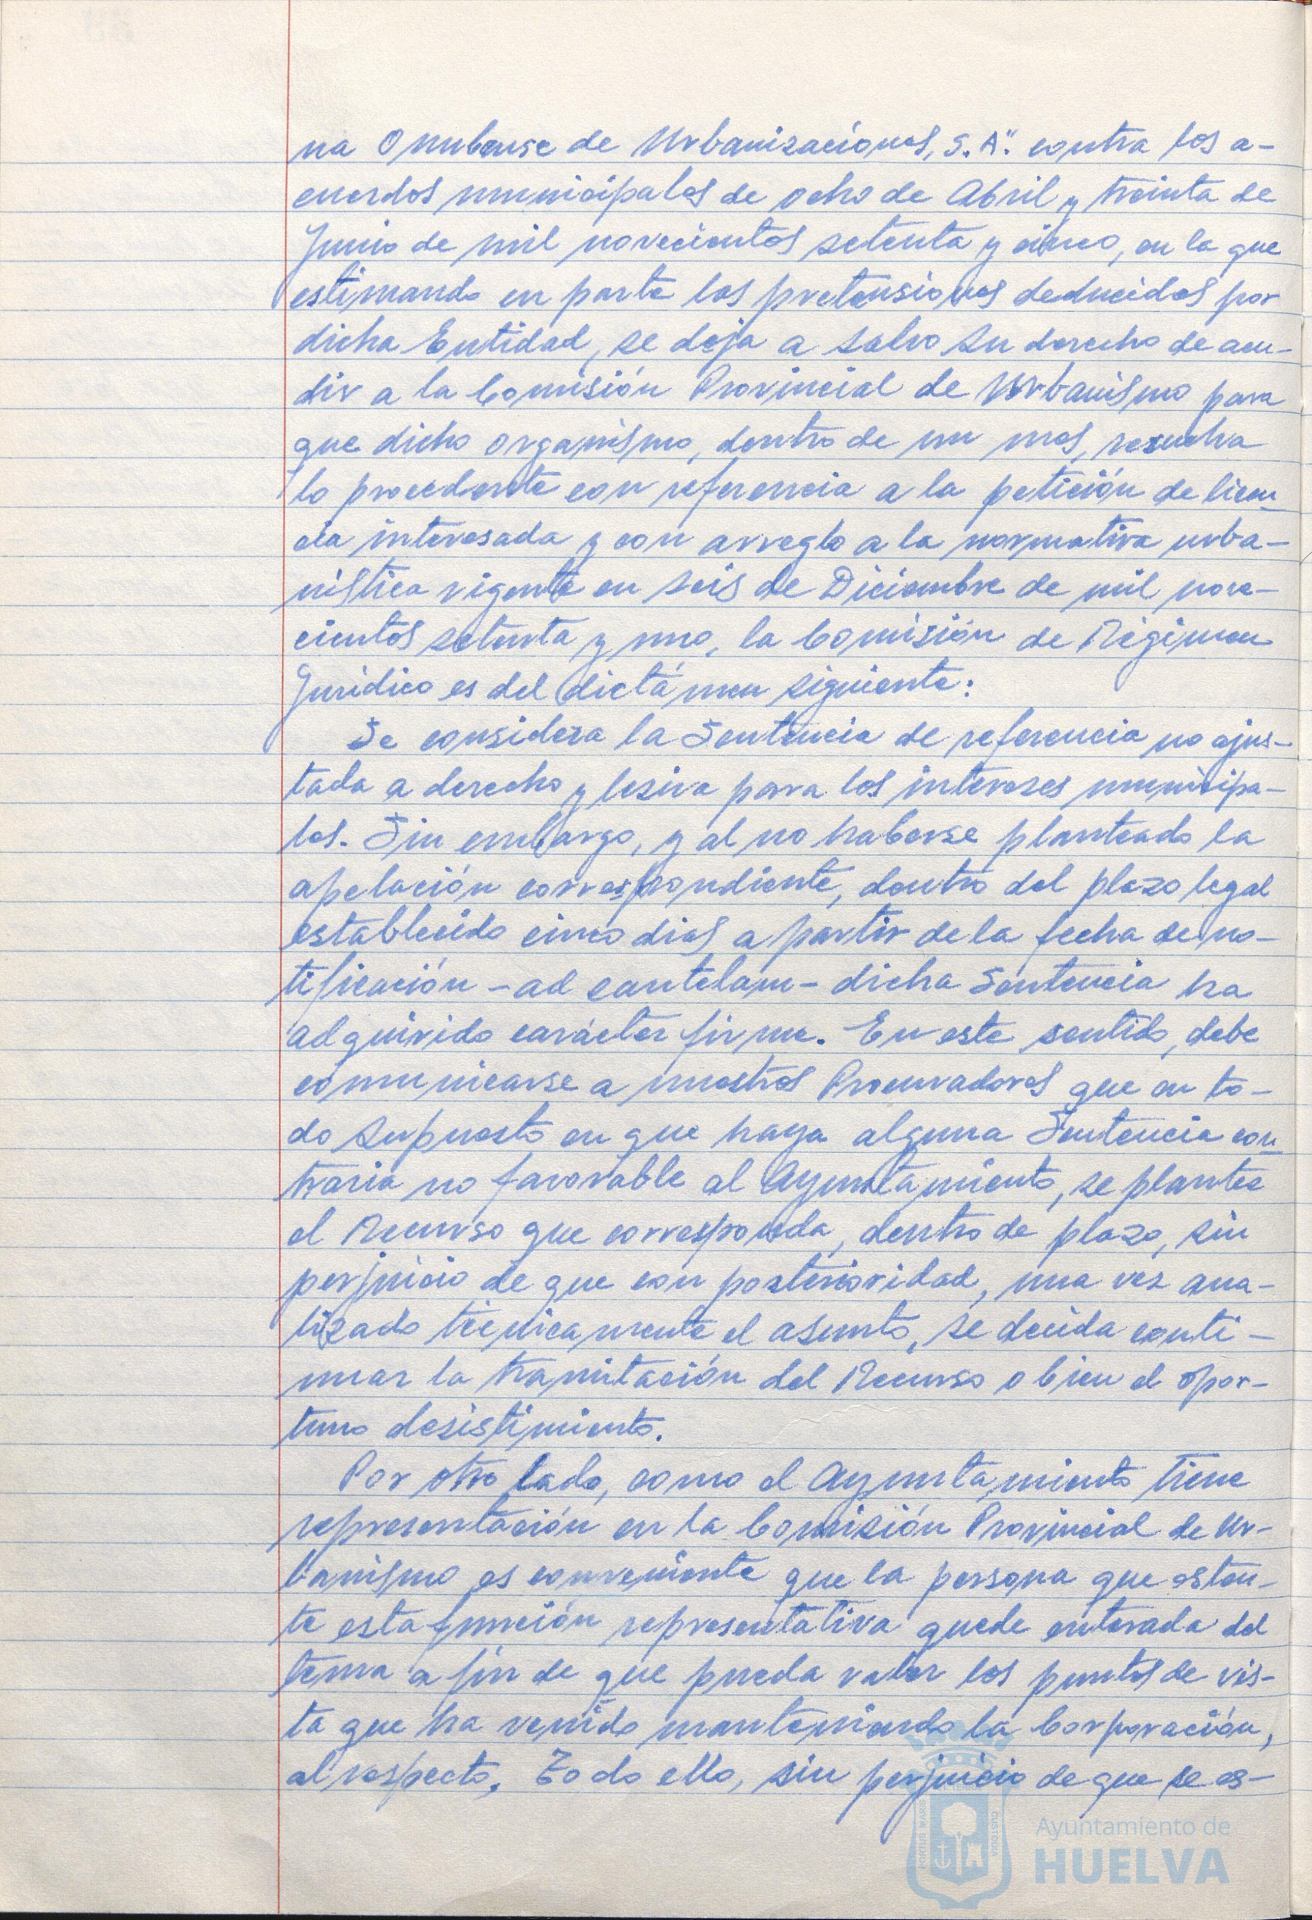 na Onubense de Urbanizaciones, S.A." contra los a-
cuerdos municipales de ocho de Abril y treinta de
Junio de mil novecientos setenta y cinco, en la que
estimando en parte las pretensiones deducidas por
dicha Entidad, se deja a salvo su derecho de acu-
dir a la Comisión Provincial de Urbanismo para
que dicho organismo, dentro de un mes, resuelva
lo procedente con referencia a la petición de licen-
cia interesada y con arreglo a la normativa urba-
nística vigente en seis de Diciembre de mil nove-
cientos setenta y uno, la Comisión de Régimen
Jurídico es del dictámen siguiente:
Se considera la Sentencia de referencia no ajus-
tada a derecho y lesiva para los intereses municipa-
les. Sin embargo, y al no haberse planteado la
apelación correspondiente, dentro del plazo legal
establecido cinco dias a partir de la fecha de no-
tificación -ad cautelam- dicha Sentencia ha
adquirido carácter firme. En este sentido, debe
comunicarse a nuestros Procuradores que en to-
do supuesto en que haya alguna Sentencia con
traria no favorable al Ayuntamiento, se plantee
el Recurso que corresponda, dentro de plazo, sin
perjuicio de que con posterioridad, una vez ana-
lizado técnicamente el asunto, se decida conti-
nuar la tramitación del Recurso o bien el opor-
tuno desistimiento.
Por otro lado, como el Ayuntamiento tiene
representación en la Comisión Provincial de Ur-
banismo es conveniente que la persona que osten-
te esta función representativa quede enterada del
tema a fin de que pueda valer los puntos de vis-
ta que ha venido manteniendo la Corporación,
al respecto. Todo ello, sin perjuicio de que se es-
Ayuntamiento de
HUELVA